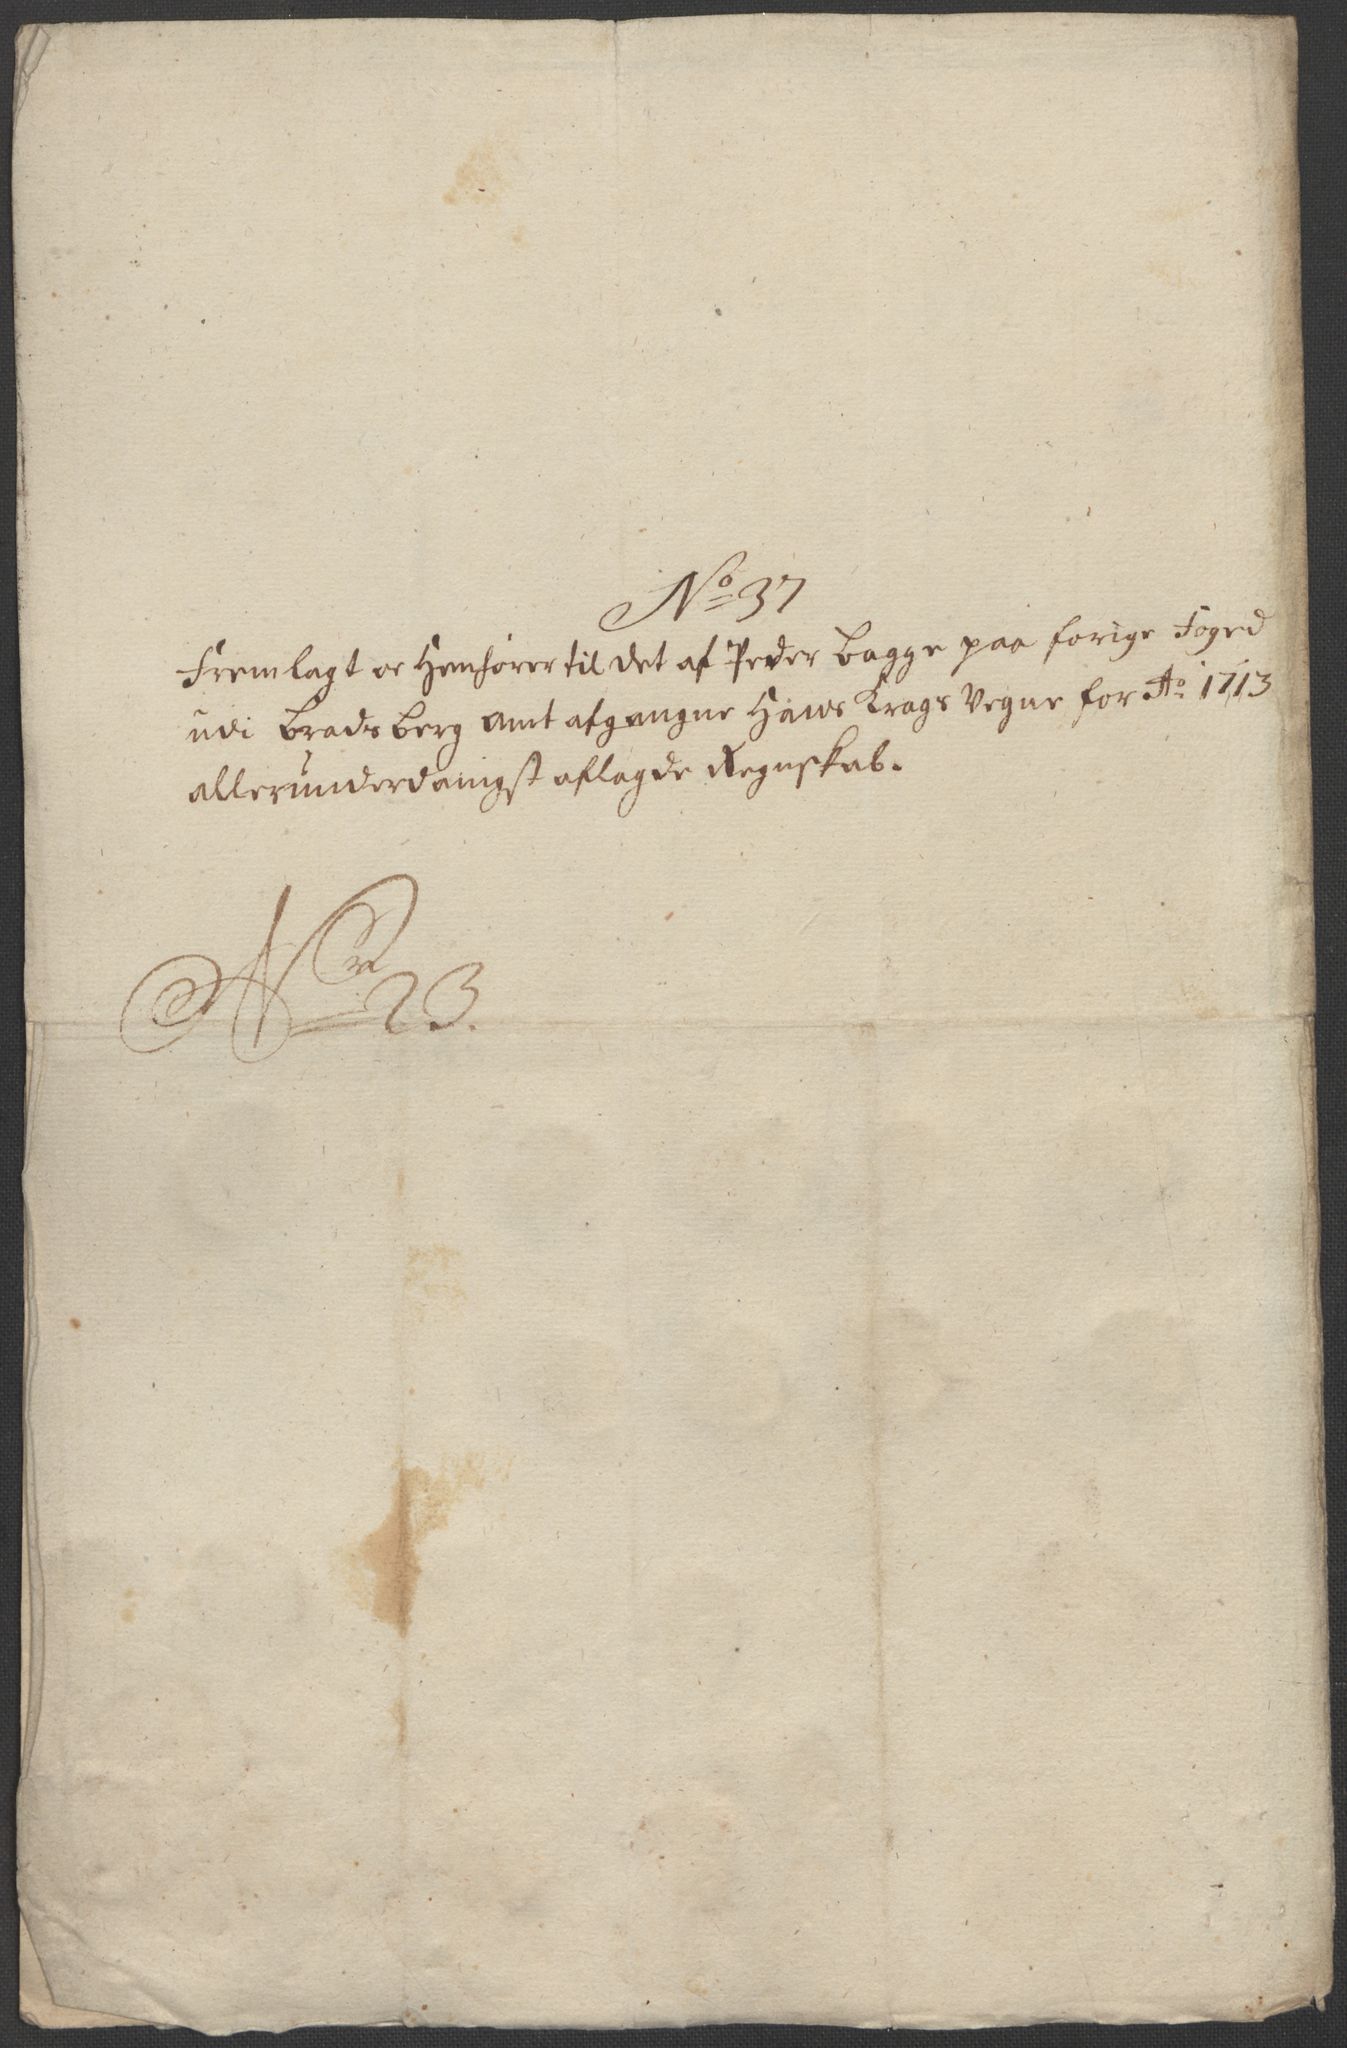 No 37
Fremlagt oc Henhører til det af Peder Bagge paa forige Foged
udi Bradsberg Amt afgangne Hans Krags Vegne for Ao 1713
allerunderdanigst aflagde Regnskab.
Nr 23.